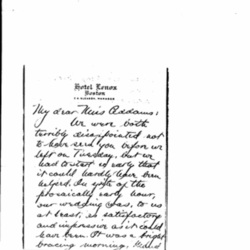 Hotel Lenox
Boston
My dear Miss Addams:
We were both
terribly disappointed not
to have seen you before we
left on Tuesday, but we
had to start so early that
it could hardly have been
helped. In spite of the
physically early hour,
our wedding was, to us
at least, as satisfactory
and impressive as it could
have been. It was a bright
bracing morning,